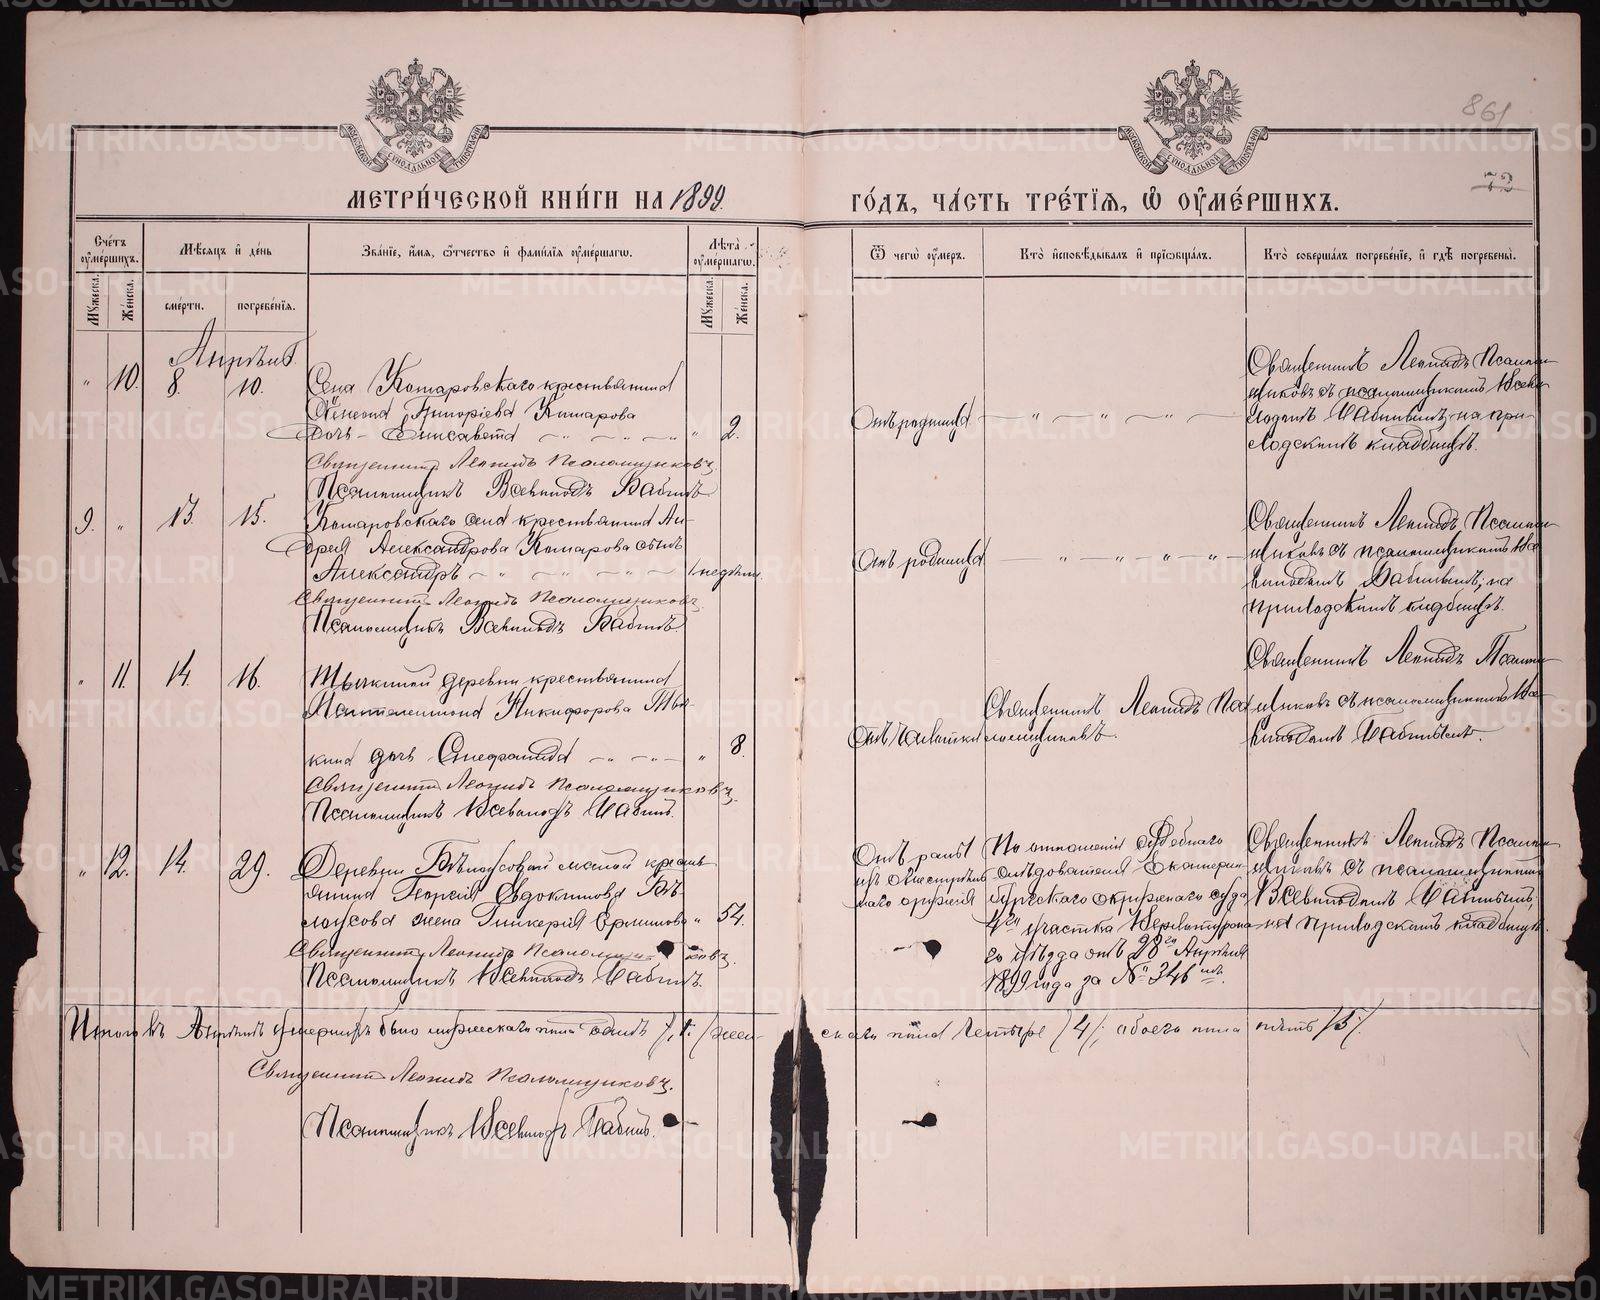 861
72
МОСКОВСКОЙ СѴНОДАЛЬНОЙ ТИПОГРАФІИ
МОСКОВСКОЙ СѴНОДАЛЬНОЙ ТИПОГРАФІИ
МЕТРИ́ЧЕСКОЙ КНИ́ГИ НА 1899
ГО́ДЪ, ЧА́СТЬ ТРЕ́ТІѦ, Ѡ ОУМЕ́РШИХЪ.
Сче́тъ оуме́ршихъ.
Мѣ́сѧцъ и де́нь
Зва́ніе, и́мѧ, ѻ҆́тчество и фами́ліѧ оуме́ршагѡ.
Лѣ́та оуме́ршагѡ.
Ѿ чегѡ̀ оу́меръ.
Кто̀ и҆сповѣ́дывалъ и прїѡбща́лъ.
Кто̀ соверша́лъ погребе́ніе, и гдѣ̀ погребены̀.
Мꙋ́жеска.
Же́нска.
сме́рти.
погребе́ніѧ.
Мꙋ́жеска.
Же́нска.
Апрѣль
" 10. 8. 10.
Села Комаровскаго крестьянина
Сѵмеона Григоріева Комарова
дочь Елисавета " 2.
Священникъ Леонидъ Псаломщиковъ.
Псаломщикъ Всеволодъ Бабинъ
Отъ родимца
Священникъ Леонидъ Псалом-
щиковъ съ псаломщикомъ Всево-
лодомъ Бабинымъ, на при-
ходскомъ кладбищѣ.
9. " 13. 15.
Комаровскаго села крестьянина Ан-
дрея Александрова Комарова сынъ
Александръ 1 недѣли.
Священникъ Леонидъ Псаломщиковъ.
Псаломщикъ Всеволодъ Бабинъ.
Отъ родимца
Священникъ Леонидъ Псалом-
щиковъ съ псаломщикомъ Все-
володомъ Бабинымъ, на
приходскомъ кладбищѣ.
" 11. 14. 16.
Тыкиной деревни крестьянина
Пантелеимона Никифорова Ты-
кина дочь Стефанида " 8.
Священникъ Леонидъ Псаломщиковъ.
Псаломщикъ Всеволодъ Бабинъ.
Отъ чахотки
Священникъ Леонидъ Пса-
ломщиковъ.
Священникъ Леонидъ Псалом-
щиковъ съ псаломщикомъ Все-
володомъ Бабинымъ.
" 12. 14. 29.
Деревни Бѣлоусовой крестья-
янина Георгія Евдокимова Бѣ-
лоусова жена Гликерія " 54.
Священникъ Леонидъ Псаломщиковъ.
Псаломщикъ Всеволодъ Бабинъ.
Отъ раны
изъ огнестрѣль-
наго оружія
По отношенію Судебнаго
слѣдователя Екатерин-
бургскаго окружнаго суда
4го участка Верхотурска-
го уѣзда отъ 28го Апрѣля
1899 года за № 346
Священникъ Леонидъ Псалом-
щиковъ съ псаломщикомъ
Всеволодомъ Бабинымъ,
на приходскомъ кладбищѣ.
Итого въ Апрѣлѣ умершихъ было мужескаго пола одинъ /1/ жен-
скаго пола четыре /4/, обоего пола пять /5/.
Священникъ Леонидъ Псаломщиковъ.
Псаломщикъ Всеволодъ Бабинъ.
METRIKI.GASO-URAL.RU